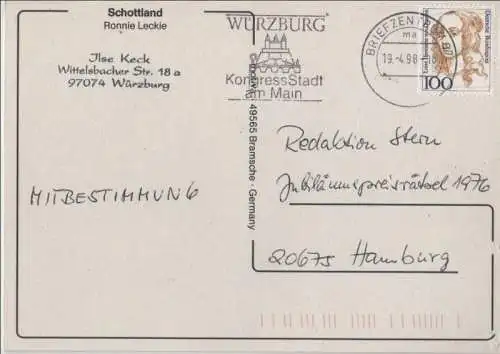 Schottland
Ronnie Leckie
Ilse Keck
Wittelsbacher Str. 18 a
97074 Würzburg
WÜRZBURG
KongressStadt
am Main
BRIEFZEN
ma
19.-4.98
Deutsche Bundespost
100
49565 Bramsche · Germany
MITBESTIMMUNG
Redaktion Stern
Jubiläumspreisrätsel 1976
20675 Hamburg